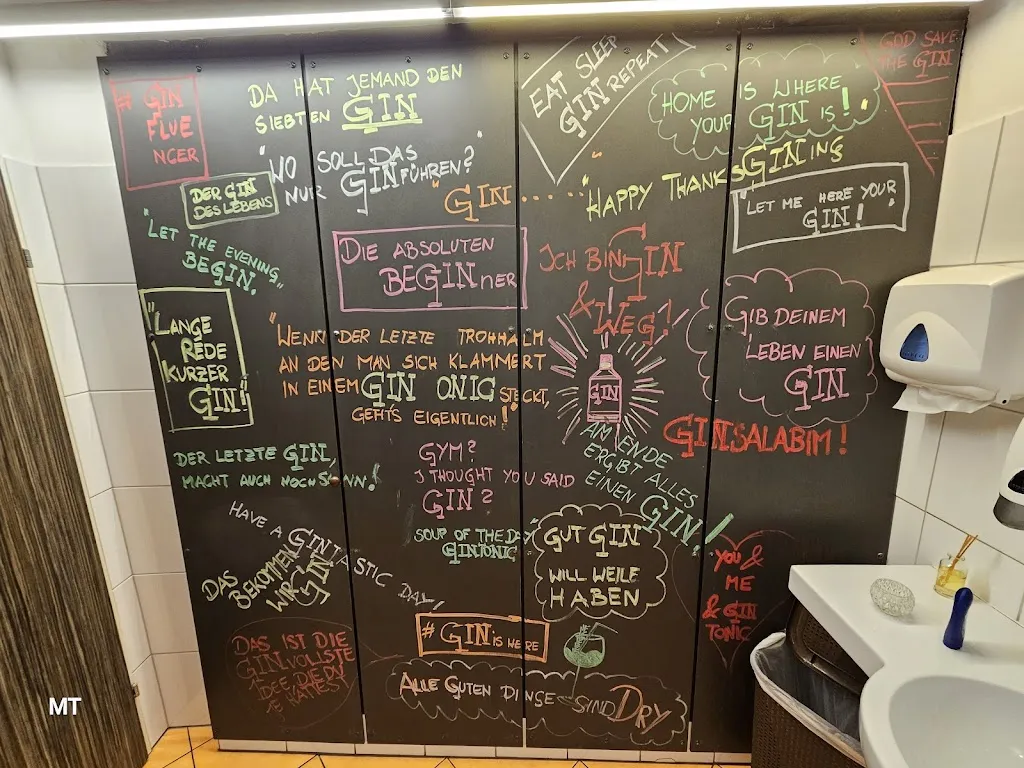 # GIN
FLUE
NCER
DA HAT JEMAND DEN
SIEBTEN GIN
EAT SLEEP
GIN REPEAT
HOME IS WHERE
YOUR GIN IS!
GOD SAVE
THE GIN
"WO SOLL DAS
NUR GINFÜHREN?"
DER GIN
DES LEBENS
"GIN......."
HAPPY THANKSGINING
"LET ME HERE YOUR
GIN!"
"LET THE EVENING
BEGIN."
DIE ABSOLUTEN
BEGINner
ICH BIN GIN
& WEG!
"LANGE
REDE
KURZER
GIN!"
"WENN DER LETZTE TROHHALM
AN DEN MAN SICH KLAMMERT
IN EINEM GIN ONIC STECKT,
GEHTS EIGENTLICH!"
GIN
GIB DEINEM
LEBEN EINEN
GIN
GINSALABIM!
DER LETZTE GIN
MACHT AUCH NOCH SINN!
GYM?
I THOUGHT YOU SAID
GIN?
AM ENDE
ERGIBT ALLES
EINEN GIN!
HAVE A GINTASTIC DAY
SOUP OF THE DAY
GINTONIC
GUT GIN
WILL WEILE
HABEN
YOU &
ME
& GIN
TONIC
DAS
BEKOMMEN
WIR GIN
# GIN IS HERE
DAS IST DIE
GINVOLLSTE
IDEE DIE DU
JE HATTES
ALLE GUTEN DINGE SIND DRY
MT